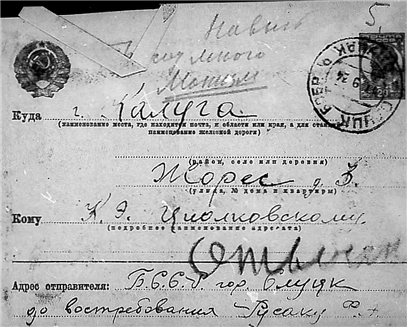 5
Куда г. Калуга.
(наименование места, где находится почта, и области или края, а для станций
наименование железной дороги)
(район, село или деревня)
Жорес д 3.
(улица, № дома и квартиры)
Кому К. Э. Циолковскому.
(подробное наименование адресата)
Адрес отправителя: Б.С.С.Р. гор. Слуцк
до востребования Русаку Ф. А